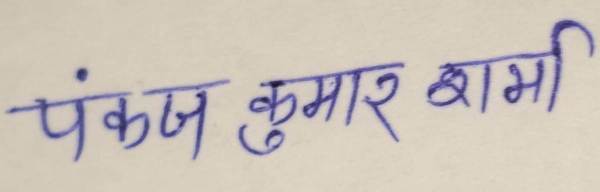 पंकज कुमार शर्मा